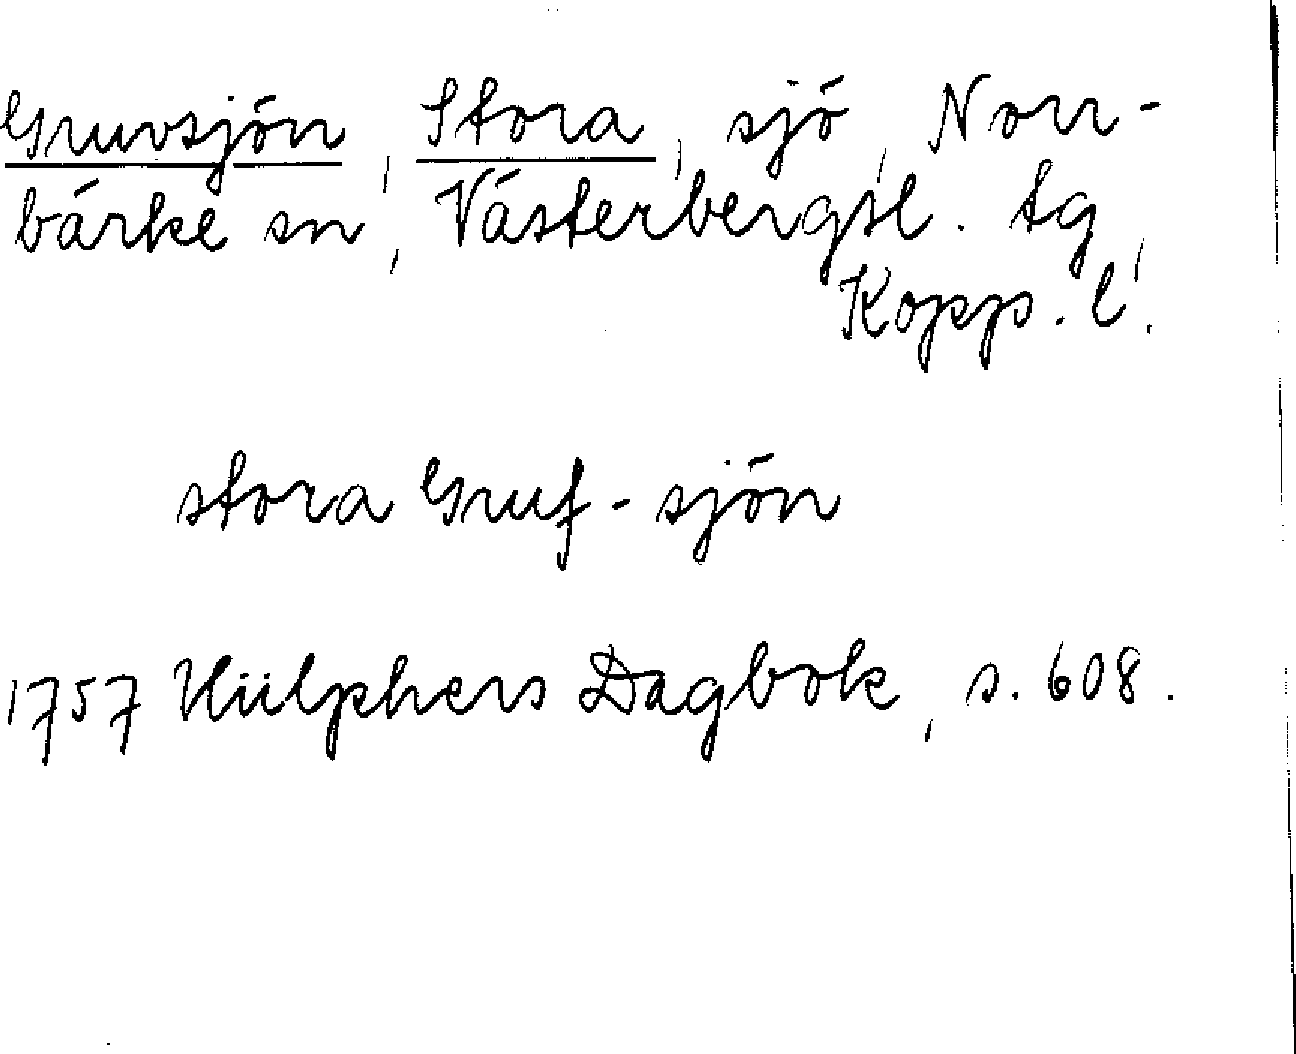 Gruvsjön, Stora, sjö, Norr-
bärke sn, Västerbergsl. tg,
Kopp. l.
stora Gruf-sjön
1757 Hülphers Dagbok, s. 608.